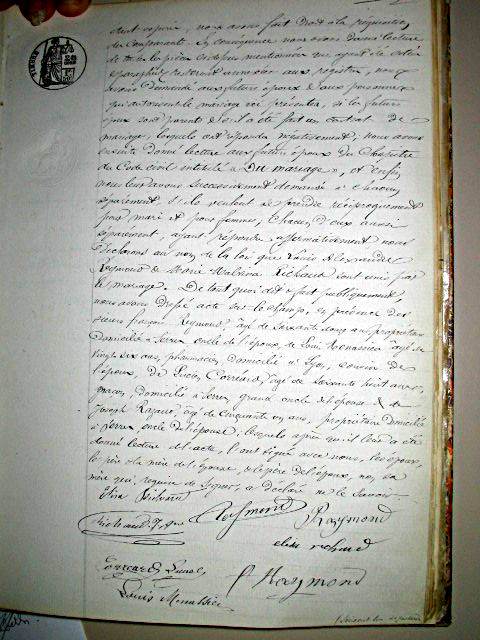 étant expirée, nous avons fait droit à la réquisition
des Comparants. En conséquence nous avons donné lecture
de toutes les pièces ci-dessus mentionnées
paraphées resteront annexées aux registres, nous
avons demandé aux futurs époux & aux personnes
qui autorisent le mariage ici présentes, si les futurs
époux sont parents & s'il a été fait un contrat de
mariage, lesquels ont répondu négativement; nous avons
ensuite donné lecture aux futurs époux du Chapitre
du Code civil intitulé « du mariage », et enfin,
nous leur avons successivement demandé à chacun
séparément, s'ils veulent se prendre réciproquement
pour mari et pour femme, chacun d'eux aussi
séparément, ayant répondu affirmativement nous
déclarons au nom de la loi que Louis Alexandre
Reymond & Marie Richaud sont unis par
le mariage. De tout quoi, dit & fait publiquement,
nous avons dressé acte sur le champ, en présence des
sieurs françois Reymond, âgé de soixante ans, propriétaire
domicilié à Serres, oncle de l'époux, de Louis âgé de
vingt six ans, pharmacien, domicilié à Lyon, cousin de
l'époux, de Lucien Corréard, âgé de soixante huit ans,
maçon, domicilié à Serres, grand oncle de l'épouse & de
Joseph âgé de cinquante un ans, propriétaire domicilié
à Serres, oncle de l'épouse; lesquels après qu'il leur a été
donné lecture de l'acte, l'ont signé avec nous, les époux,
le père & la mère de l'épouse, & le père de l'époux, non sa
mère qui, requise de signer, a déclaré ne le savoir.
Elisa Richaud
Richaud Reymond Raymond
elise richaud
Correard Lucien F Raymond
Louis